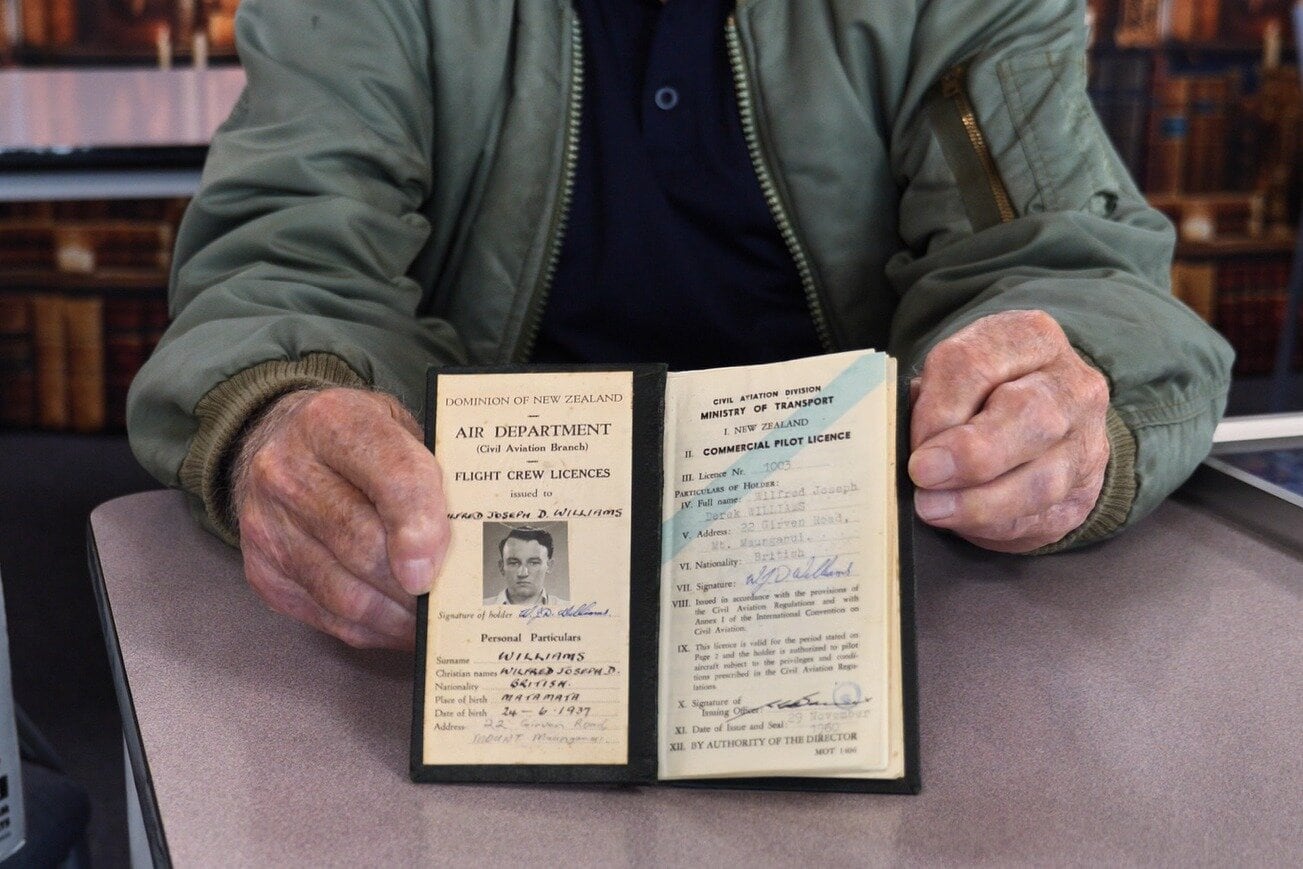 DOMINION OF NEW ZEALAND
AIR DEPARTMENT
(Civil Aviation Branch)
FLIGHT CREW LICENCES
issued to
WILFRED JOSEPH D. WILLIAMS
Signature of holder W.J.D. Williams.
Personal Particulars
Surname WILLIAMS
Christian names WILFRED JOSEPH. D.
Nationality BRITISH.
Place of birth MATAMATA
Date of birth 24-6-1937
Address 22 Girven Road
MOUNT Maunganui.
CIVIL AVIATION DIVISION
MINISTRY OF TRANSPORT
I. NEW ZEALAND
II. COMMERCIAL PILOT LICENCE
III. Licence Nr. 1003
PARTICULARS OF HOLDER:
IV. Full name: Wilfred Joseph
Derek WILLIAMS
V. Address: 22 Girven Road,
Mt. Maunganui.
VI. Nationality: British
VII. Signature: W J D Williams
VIII. Issued in accordance with the provisions of
the Civil Aviation Regulations and with
Annex I of the International Convention on
Civil Aviation.
IX. This licence is valid for the period stated on
Page 2 and the holder is authorized to pilot
aircraft subject to the privileges and condi-
tions prescribed in the Civil Aviation Regu-
lations.
X. Signature of
Issuing Officer
XI. Date of Issue and Seal: 29 November
XII. BY AUTHORITY OF THE DIRECTOR
MOT 1406